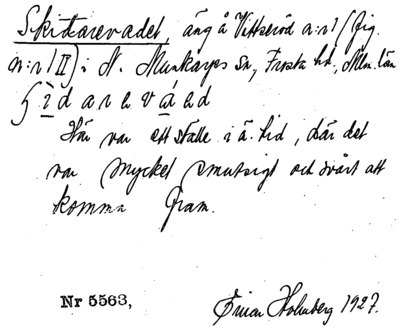 Skittarevadet, äng å Vittseröd n:r 1 (fig.
n:r 1 II) i N. Munkarps sn, Frosta hd, Mlm. län
ʃìdarevád
Här var ett ställe i ä. tid, där det
var mycket smutsigt och svårt att
komma fram.
Nr 5563, Einar Holmberg 1927.